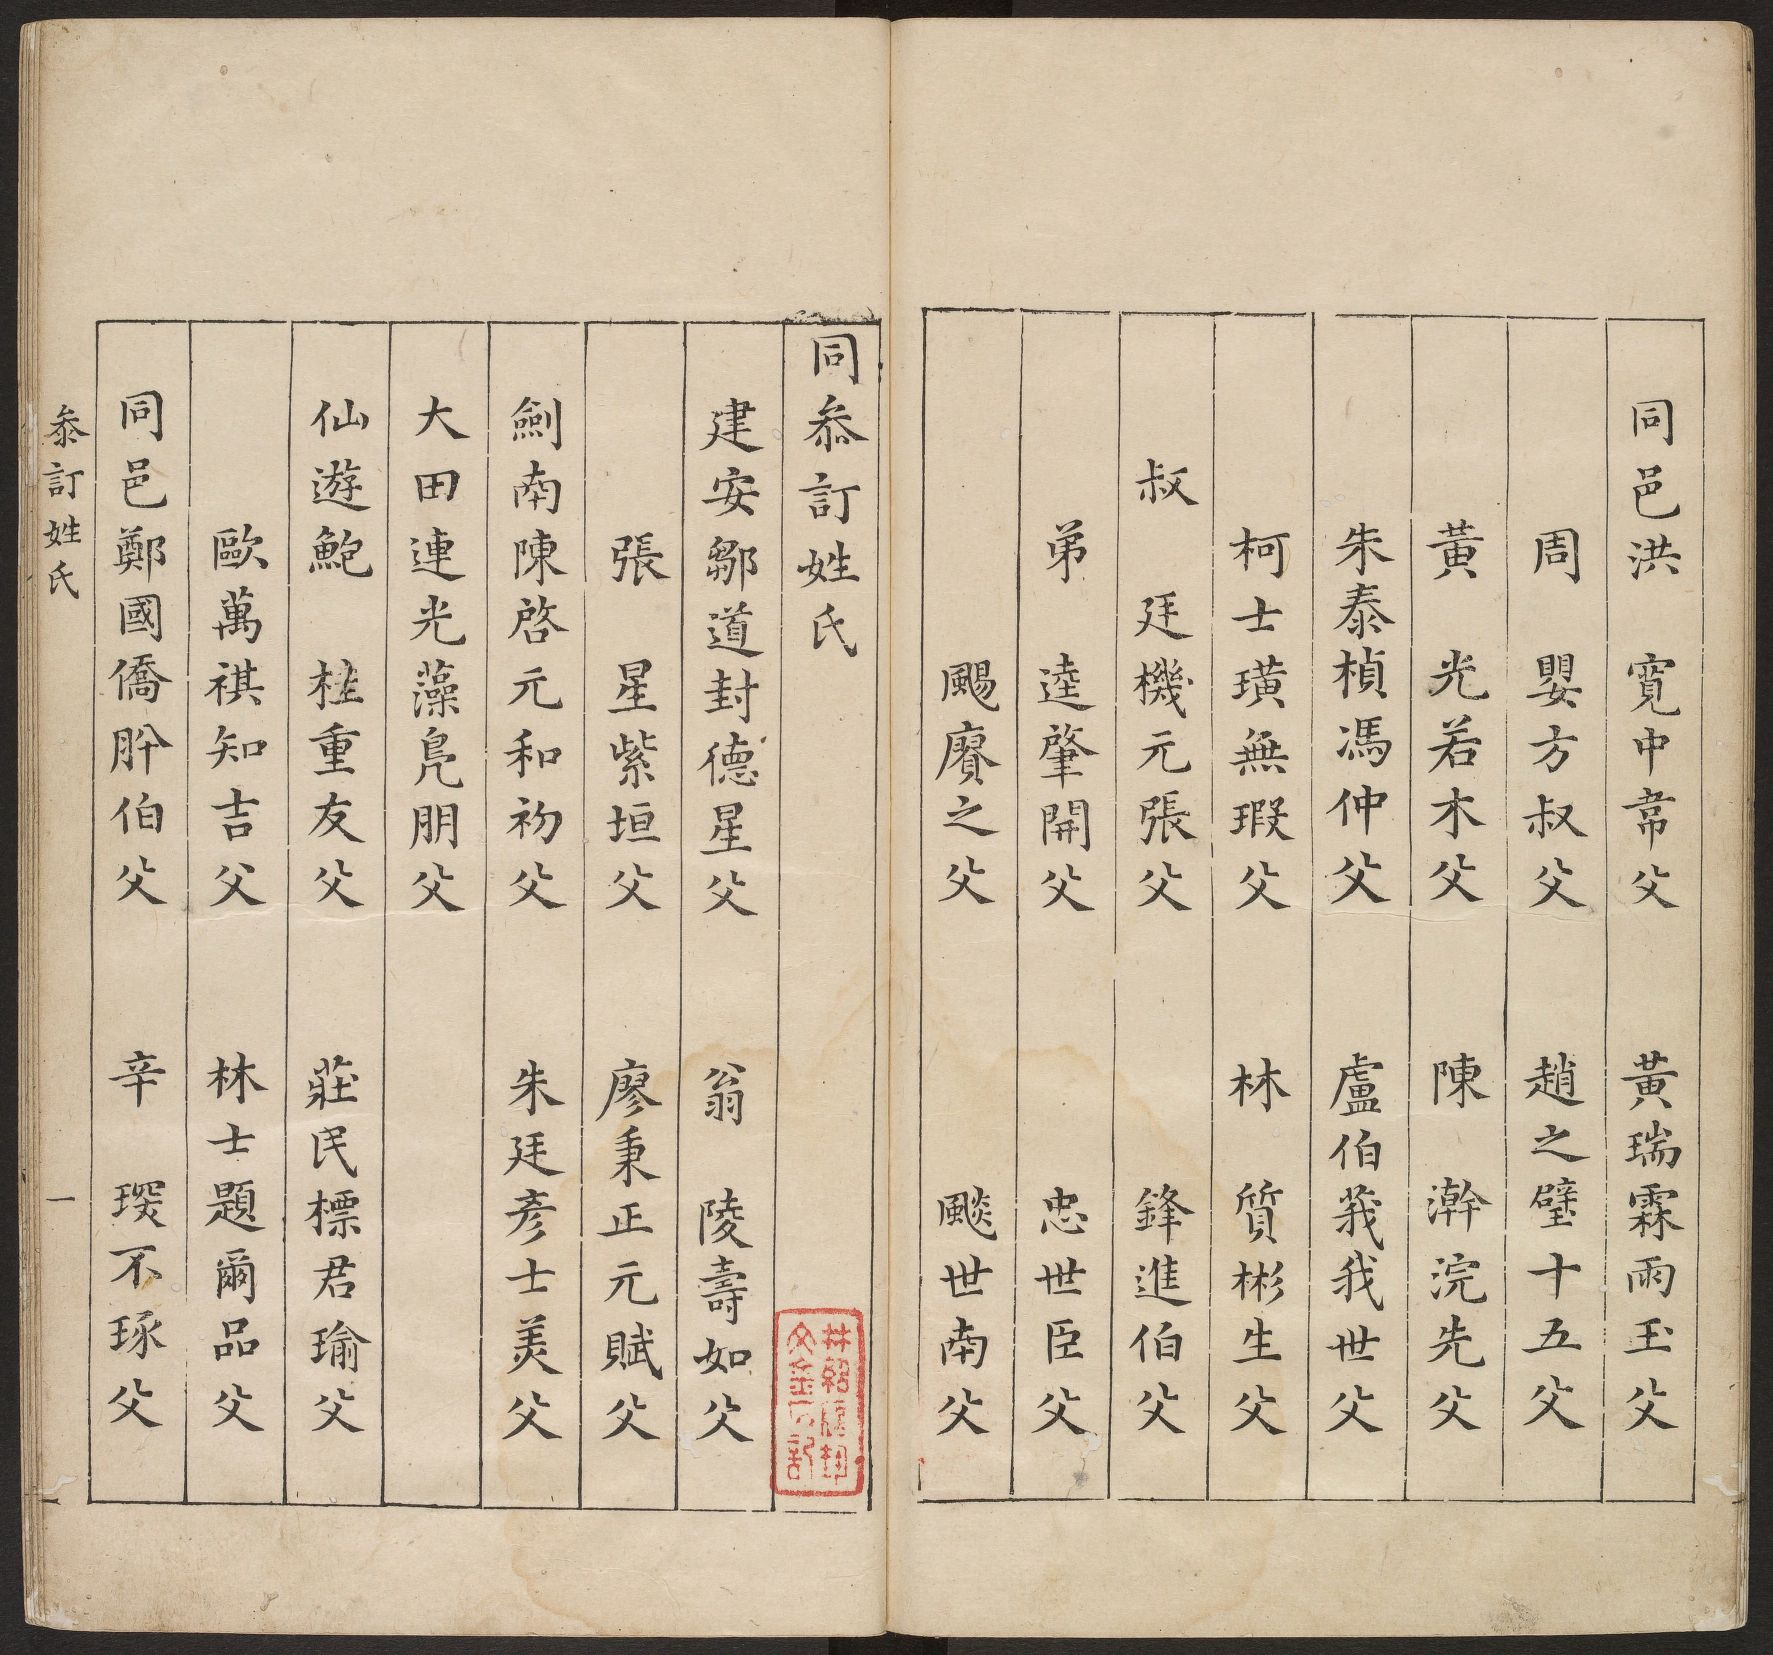 同邑洪　寬中韋父　黃瑞霖雨玉父
周　嬰方叔父　趙之璧十五父
黃　光若木父　陳　澣浣先父
朱泰楨馮仲父　盧伯莪我世父
柯士璜無瑕父　林　質彬生父
叔　廷機元張父　鋒進伯父
弟　逵肇開父　忠世臣父
颺賡之父　颷世南父
同叅訂姓氏
建安鄒道封德星父　翁　陵壽如父
張　星紫垣父　廖秉正元賦父
劍南陳啓元和初父　朱廷彥士美父
大田連光藻鳧朋父
仙遊鮑　桂重友父　莊民標君瑜父
歐萬祺知吉父　林士題爾品父
同邑鄭國僑肸伯父　辛　琝不琢父
叅訂姓氏　一